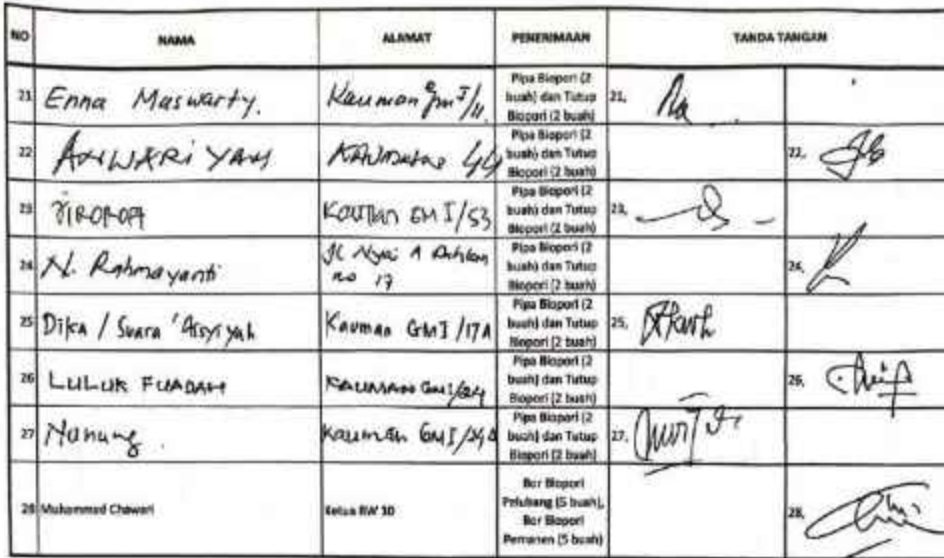 NO NAMA ALAMAT PENERIMAAN TANDA TANGAN
21 Enna Maswarty. Kauman Gm I/11 Pipa Biopori (2 buah) dan Tutup Biopori (2 buah) 21,
22 44 Pipa Biopori (2 buah) dan Tutup Biopori (2 buah) 22,
23 Kauman GM I/53 Pipa Biopori (2 buah) dan Tutup Biopori (2 buah) 23,
24 N. Rahmayanti Jl Nyai A Dahlan no 17 Pipa Biopori (2 buah) dan Tutup Biopori (2 buah) 24,
25 Dika / Suara 'Aisyiyah Kauman GM I /17A Pipa Biopori (2 buah) dan Tutup Biopori (2 buah) 25,
26 LULUK FUADAH KAUMAN GM I/24 Pipa Biopori (2 buah) dan Tutup Biopori (2 buah) 26,
27 Nanung. Kauman GM I/24A Pipa Biopori (2 buah) dan Tutup Biopori (2 buah) 27,
28 Muhammad Chawari Ketua RW 10 Bor Biopori Pelubang (5 buah), Bor Biopori Permanen (5 buah) 28,